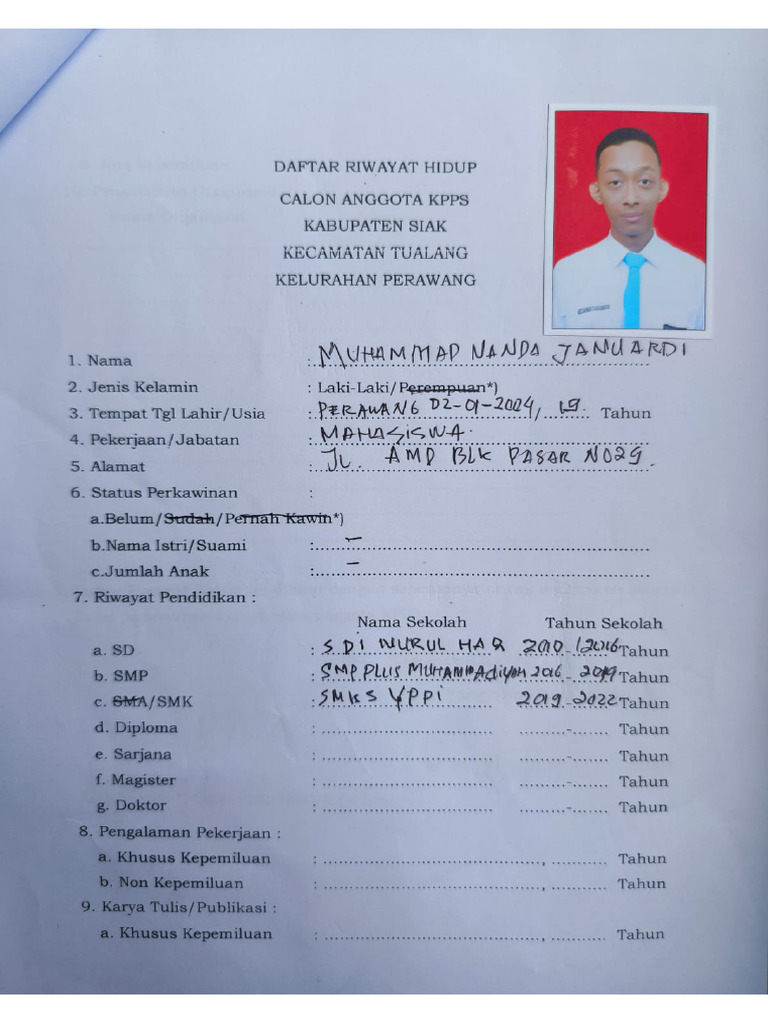 DAFTAR RIWAYAT HIDUP
CALON ANGGOTA KPPS
KABUPATEN SIAK
KECAMATAN TUALANG
KELURAHAN PERAWANG
1. Nama : MUHAMMAD NANDA JANUARDI
2. Jenis Kelamin : Laki-Laki/Perempuan*)
3. Tempat Tgl Lahir/Usia : PERAWANG 02-01-2004, 19 Tahun
4. Pekerjaan/Jabatan : MAHASISWA
5. Alamat : JL. AMD BLK PASAR NO29.
6. Status Perkawinan :
a.Belum/Sudah/Pernah Kawin*)
b.Nama Istri/Suami : -
c.Jumlah Anak : -
7. Riwayat Pendidikan :
Nama Sekolah Tahun Sekolah
a. SD : SDI NURUL HAQ 2010-2016 Tahun
b. SMP : SMP PLUS MUHAMMAdiyah 2016-2019 Tahun
c. SMA/SMK : SMKS YPPI 2019-2022 Tahun
d. Diploma : ..........-....... Tahun
e. Sarjana : ..........-....... Tahun
f. Magister : ..........-....... Tahun
g. Doktor : ..........-....... Tahun
8. Pengalaman Pekerjaan :
a. Khusus Kepemiluan : ................, ........... Tahun
b. Non Kepemiluan : ................, ........... Tahun
9. Karya Tulis/Publikasi :
a. Khusus Kepemiluan : ................, ........... Tahun